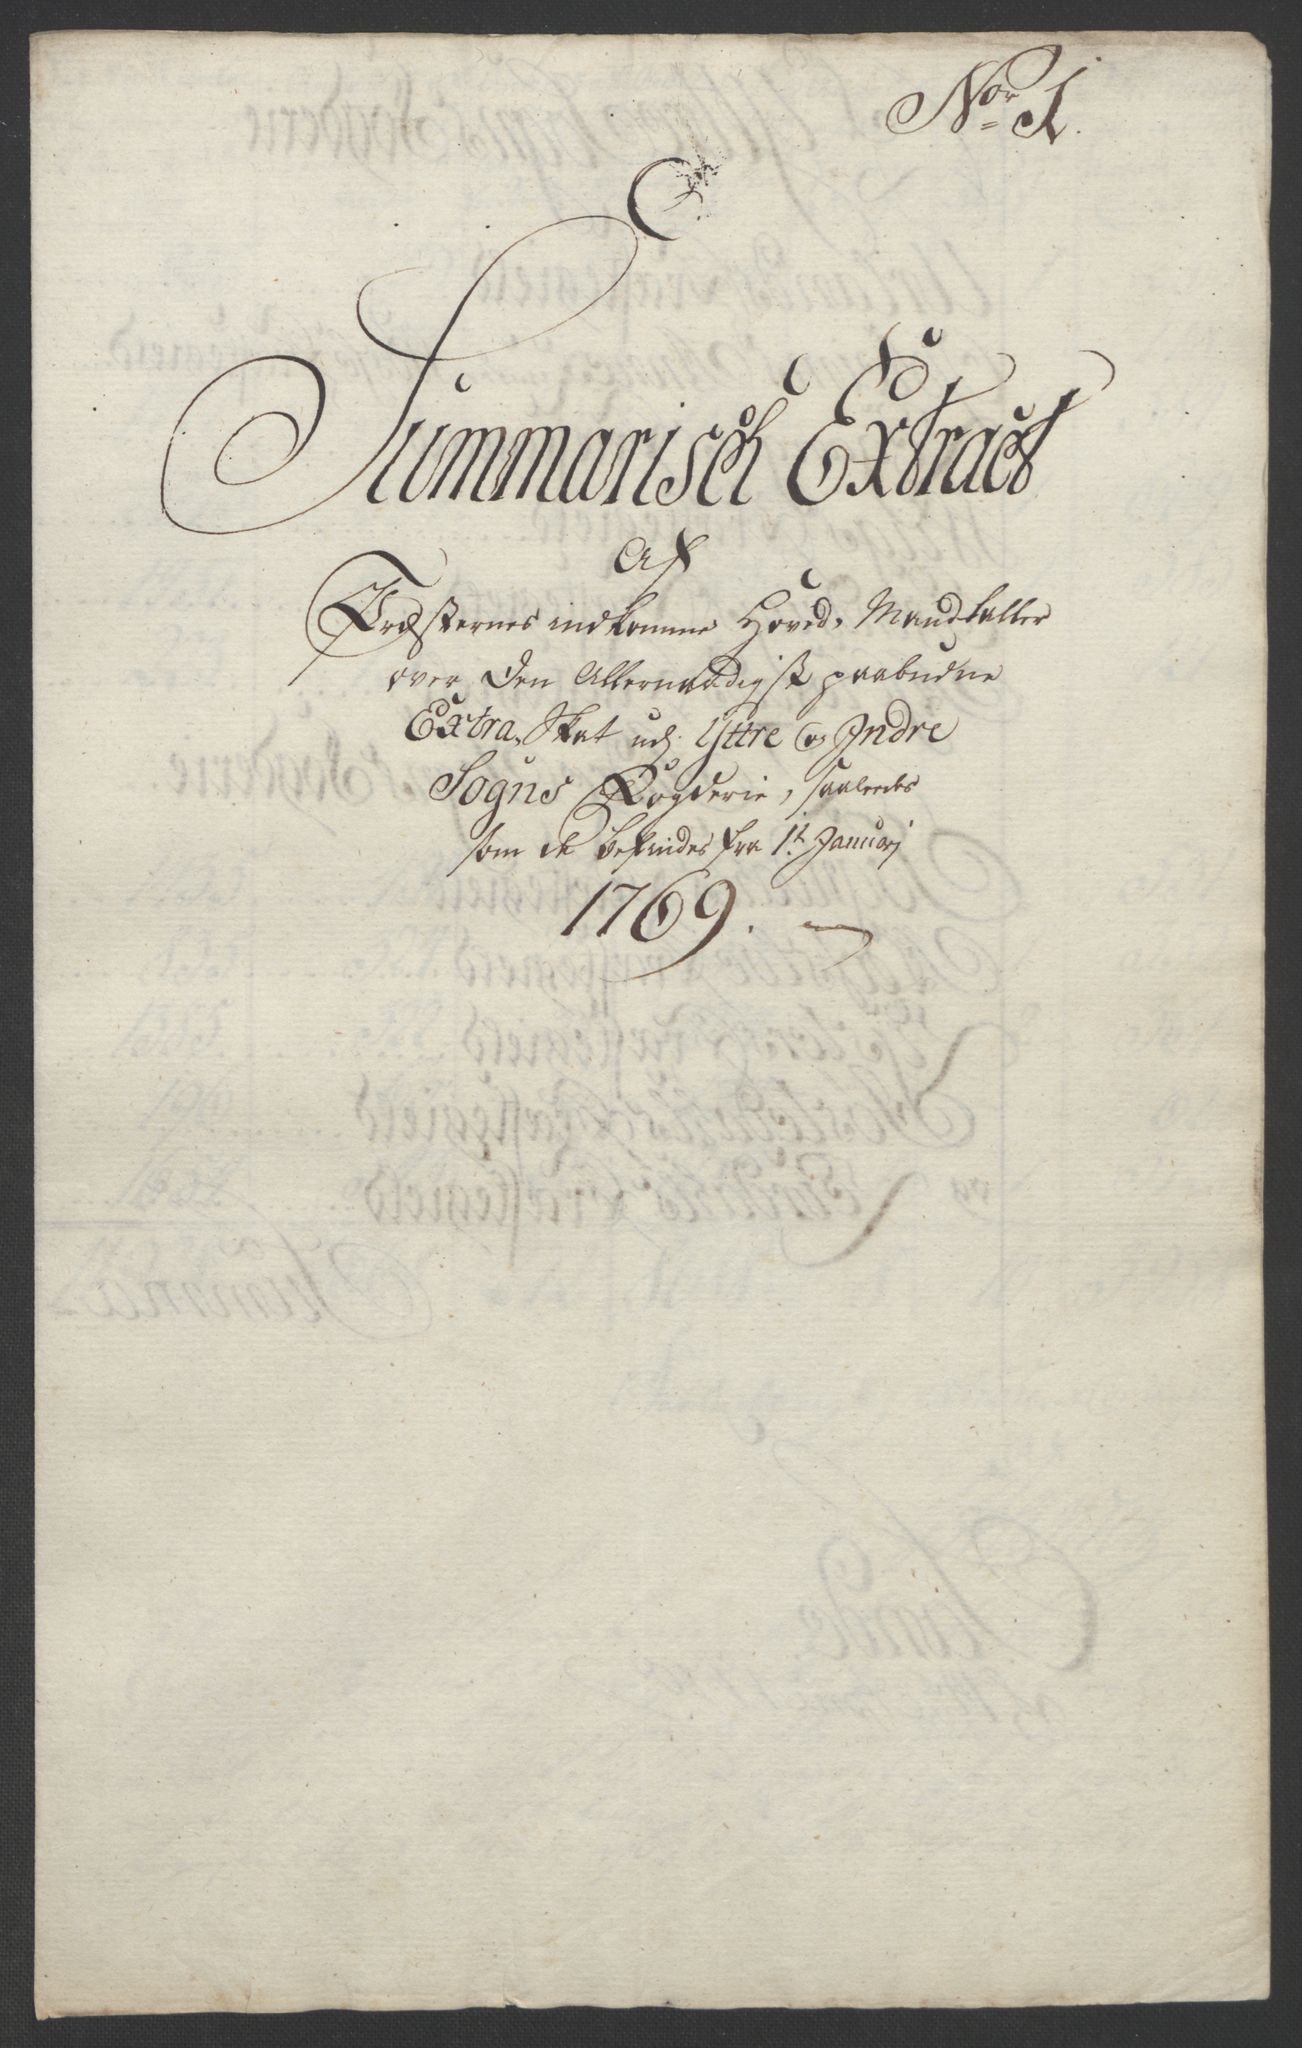 No. 1.
Summarisch Extract
Af
Præsternes indkomne Hoved-Mandtaller
over den Allernaadigst paabudne
Extra-Skat udj Yttre og Indre
Sogns Fogderie, saaledes
som de befindes fra 1t. Januarj
1769.